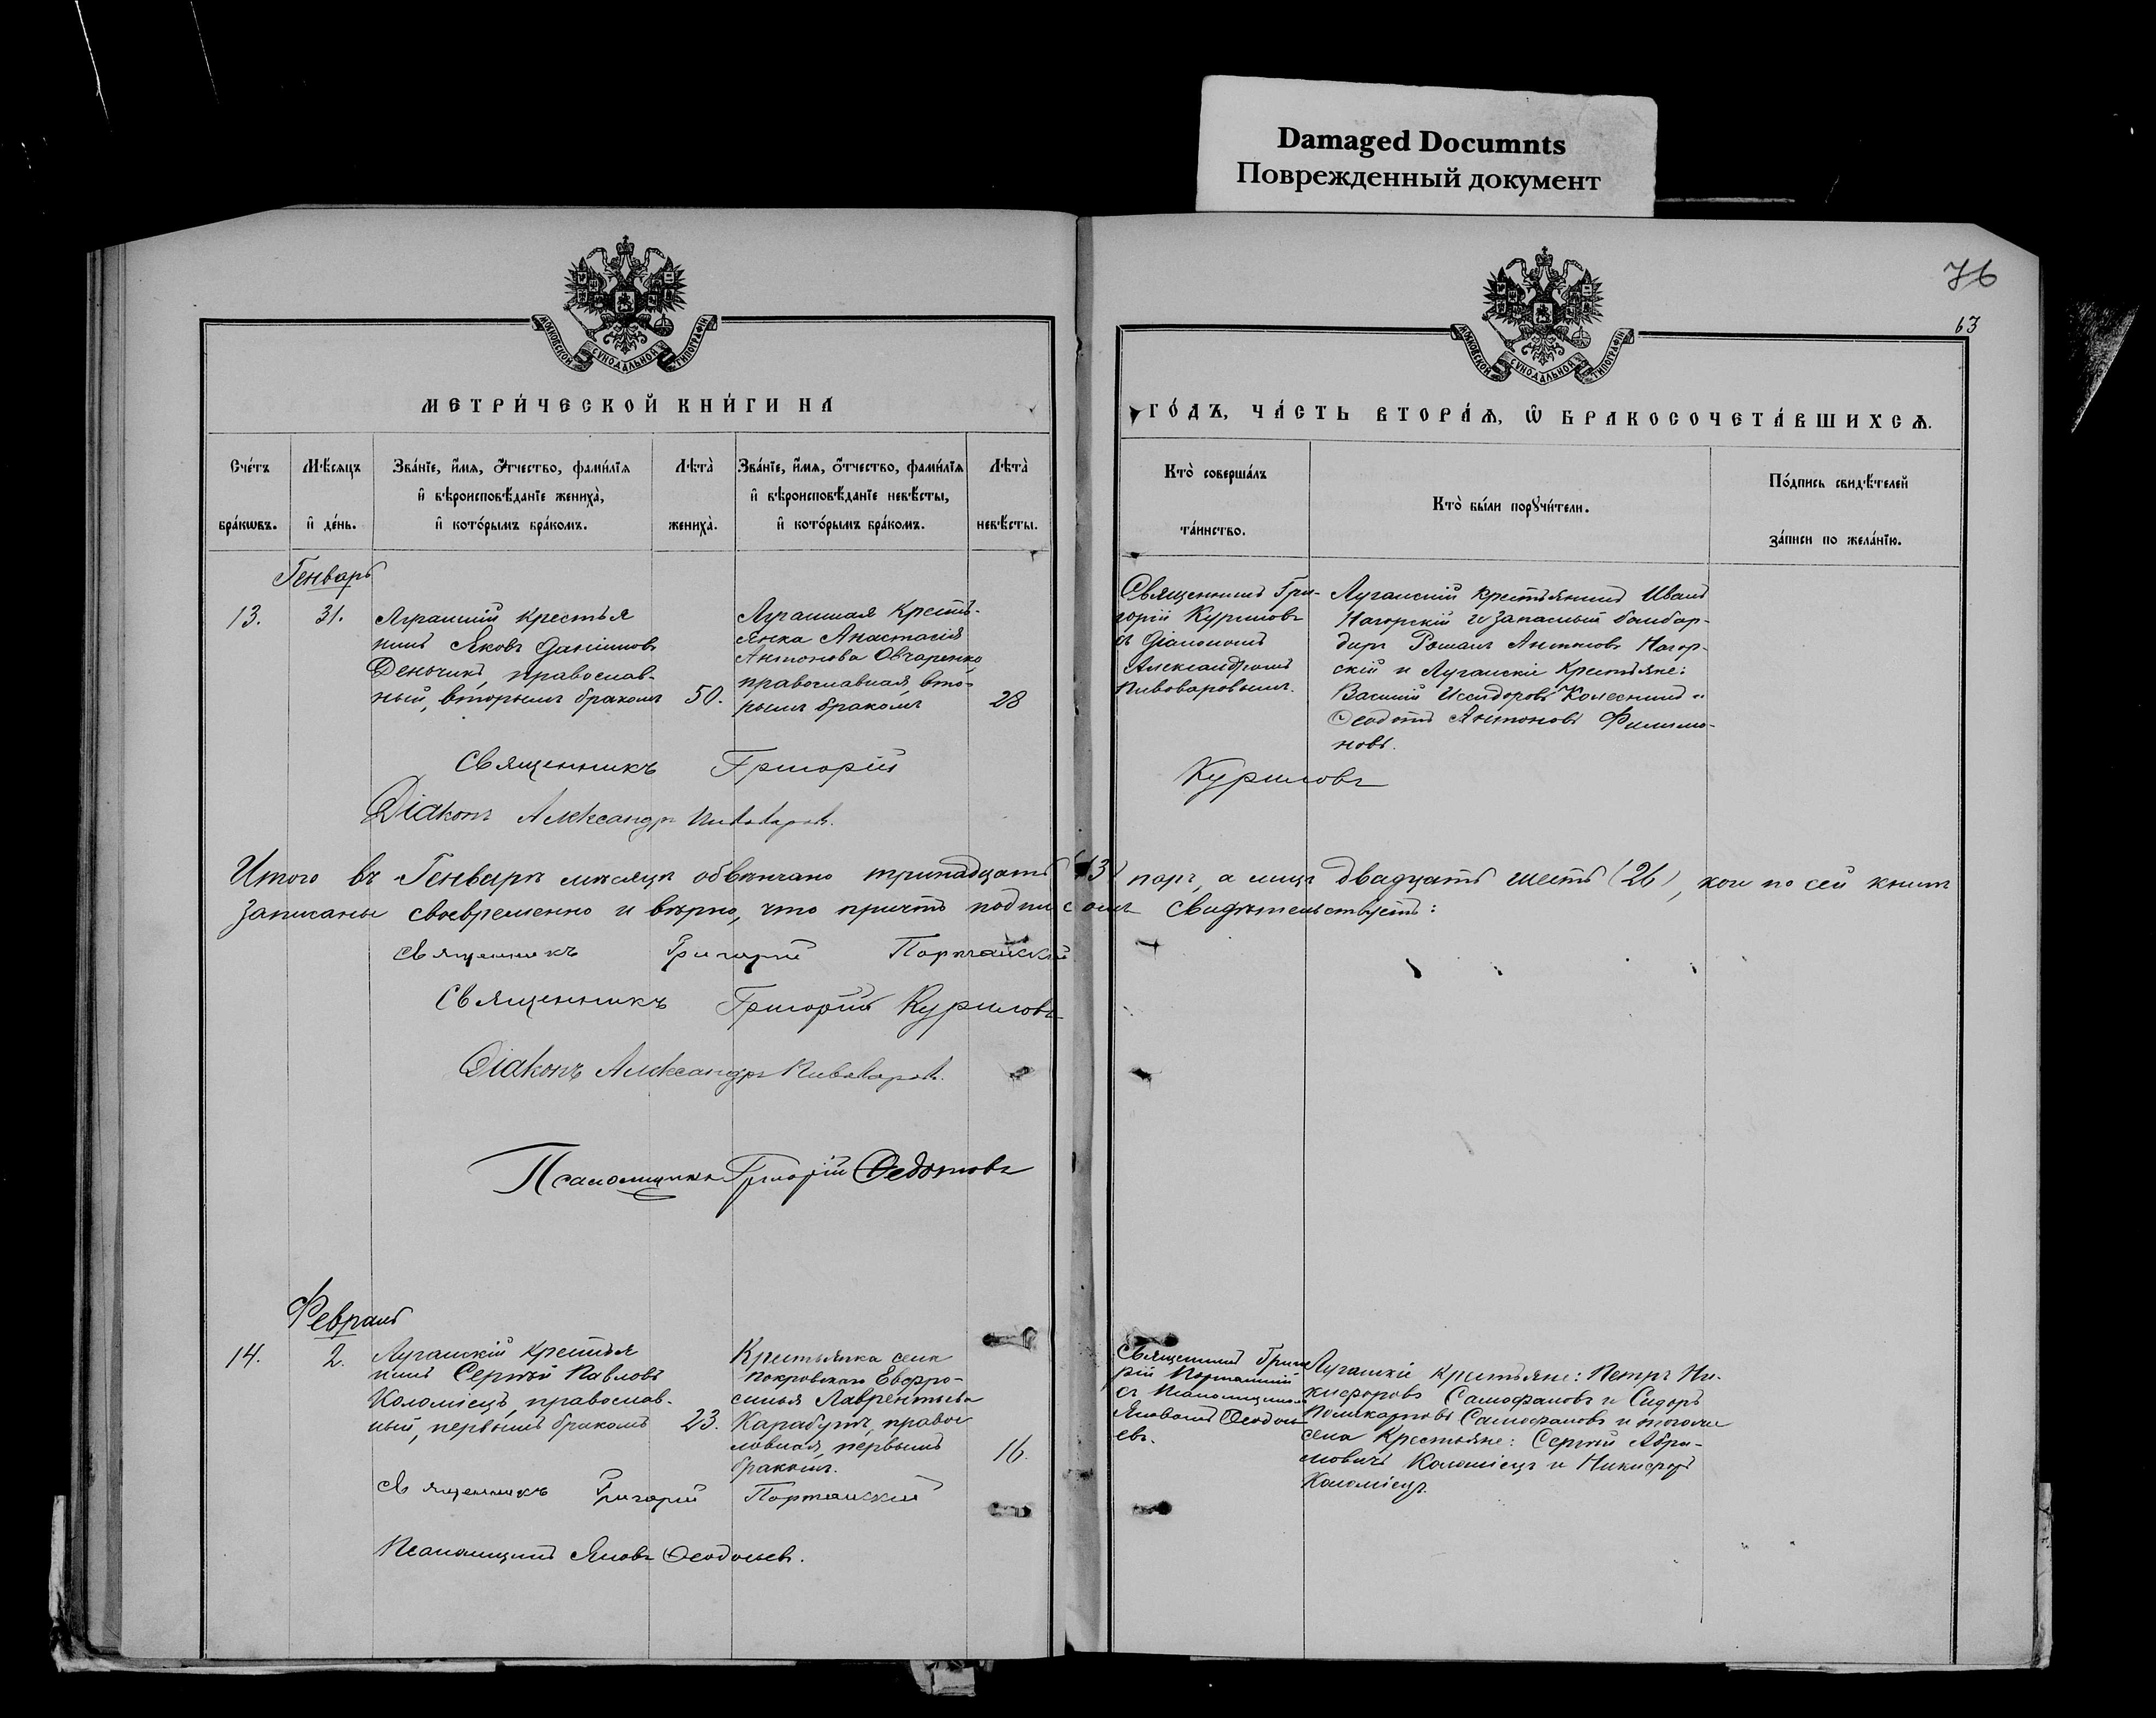 Damaged Documnts
Поврежденный документ
76
63
МОСКОВСКОЙ СѴНОДАЛЬНОЙ ТИПОГРАФІИ
МОСКОВСКОЙ СѴНОДАЛЬНОЙ ТИПОГРАФІИ
МЕТРИ́ЧЕСКОЙ КНИ́ГИ НА
ГО́ДЪ, ЧА́СТЬ ВТОРА́Ѧ, Ѽ БРАКОСОЧЕТА́ВШИХСѦ.
Сче́тъ бра́кѡвъ.
Мѣ́сяцъ и҆ де́нь.
Зва́нїе, и҆́мѧ, ѻ҆́тчество, фами́лїѧ
и҆ вѣроисповѣ́данїе жениха̀,
и҆ кото́рымъ бра́комъ.
Лѣта̀ жениха̀.
Зва́нїе, и҆́мѧ, ѻ҆́тчество, фами́лїѧ
и҆ вѣроисповѣ́данїе невѣ́сты,
и҆ кото́рымъ бра́комъ.
Лѣта̀ невѣ́сты.
Кто̀ соверша́лъ
та́инство.
Кто̀ бы́ли порꙋчи́тели.
По́дпись свидѣ́телей
за́писи по жела́нїю.
Генварь
13.
31.
Луганскій крестья
нинъ Яковъ Даніиловъ
Деньчикъ, православ-
ный, вторымъ бракомъ
50.
Луганская кресть-
янка Анастасія
Антонова Овчаренко
православная, вто-
рымъ бракомъ
28
Священникъ Гри-
горій Куриловъ
съ діакономъ
Александромъ
Пивоваровымъ.
Луганскій крестьянинъ Иванъ
Нагорскій и запасный бомбар-
диръ Романъ Антоновъ Нагор-
скій и Луганскіе крестьяне:
Василій Исидоровъ Колесникъ и
Ѳеодотъ Антоновъ Филимо-
новъ.
Священникъ Григорій Куриловъ
Діаконъ Александръ Пивоваровъ.
Итого въ Генварѣ мѣсяцѣ обвѣнчано тринадцать (13) паръ, а лицъ двадцать шесть (26), кои по сей книгѣ
записаны своевременно и вѣрно, что причтъ подписомъ свидѣтельствуетъ:
Священникъ Григорій Порт
Священникъ Григорій Куриловъ
Діаконъ Александръ Пивоваровъ.
Псаломщикъ Григорій Ѳедотовъ
Февраль
14.
2.
Луганскій крестья
нинъ Сергѣй Павловъ
Коломіецъ, православ-
ный, первымъ бракомъ
23.
Крестьянка села
Покровскаго Евфро-
синія Лаврентьева
Карабутъ, право
славная, первымъ
бракомъ.
16.
Священникъ Григо
рій
съ псаломщикомъ
Яковомъ Ѳеодось
евъ.
Луганскіе крестьяне: Петръ Ни-
кифоровъ Самофаловъ и Сидоръ
Поликарповъ Самофаловъ и тогоже
села крестьяне: Сергѣй Абра-
мовичъ Коломіецъ и Никифоръ
Коломіецъ.
Священникъ Григорій
Псаломщикъ Яковъ Ѳеодосьевъ.